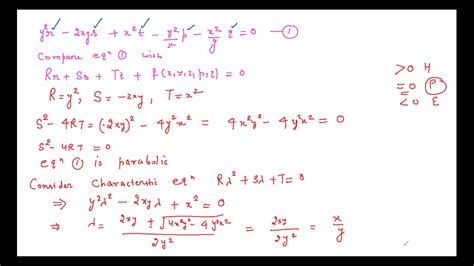 y²r - 2xys + x²t - y²/x p - x²/y q = 0 — ①
Compare eqⁿ ① with
Rr + Ss + Tt + f(x,y,z,p,q) = 0
R = y², S = -2xy, T = x²
S² - 4RT = (-2xy)² - 4y²x² = 4x²y² - 4y²x² = 0
S² - 4RT = 0
eqⁿ ① is parabolic
Consider Characteristic eqⁿ Rλ² + Sλ + T = 0
⇒ y²λ² - 2xyλ + x² = 0
⇒ λ = 2xy ± √4x²y² - 4y²x² / 2y² = 2xy / 2y² = x/y
>0 H
=0 P
<0 E